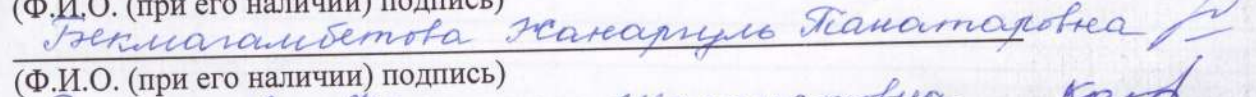 (Ф.И.О. (при его наличии) подпись)
Бекмагамбетова Жанаргуль Танатаровна
(Ф.И.О. (при его наличии) подпись)